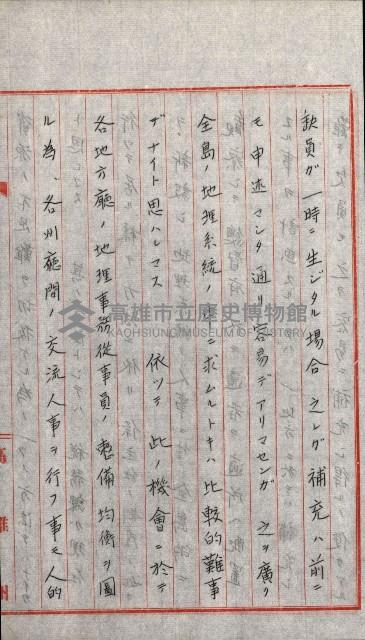 缺員ガ一時ニ生ジタル場合之レガ補充ハ前ニ
モ申述マシタ通リ容易デアリマセンガ之ヲ廣ク
全島ノ地理系統ノ ニ求ムルトキハ比較的難事
デナイト思ハレマス依ツテ此ノ機會ニ於テ
各地方廳ノ地理事務從事員ノ整備均衡ヲ圖
ル為各州廳間ノ交流人事ヲ行フ事モ人的
高雄市立歷史博物館
KAOHSIUNG MUSEUM OF HISTORY
高雄州